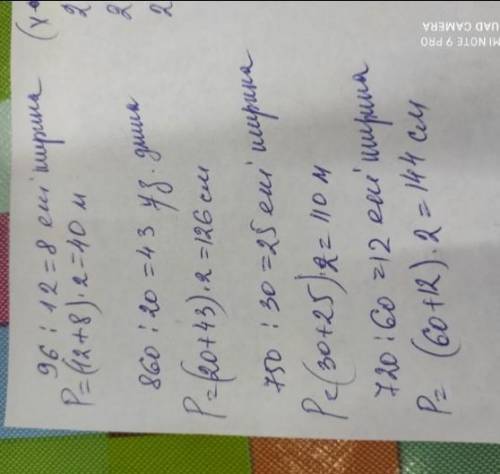 96 : 12 = 8 ені ширина
P=(12+8)·2=40 м
860 : 20 = 43 уз. длина
P=(20+43)·2=126 см
750 : 30 = 25 ені ширина
P=(30+25)·2=110 м
720 : 60 = 12 ені ширина
P= (60+12)·2=144 см
2
2
2
MI NOTE 9 PRO
UAD CAMERA